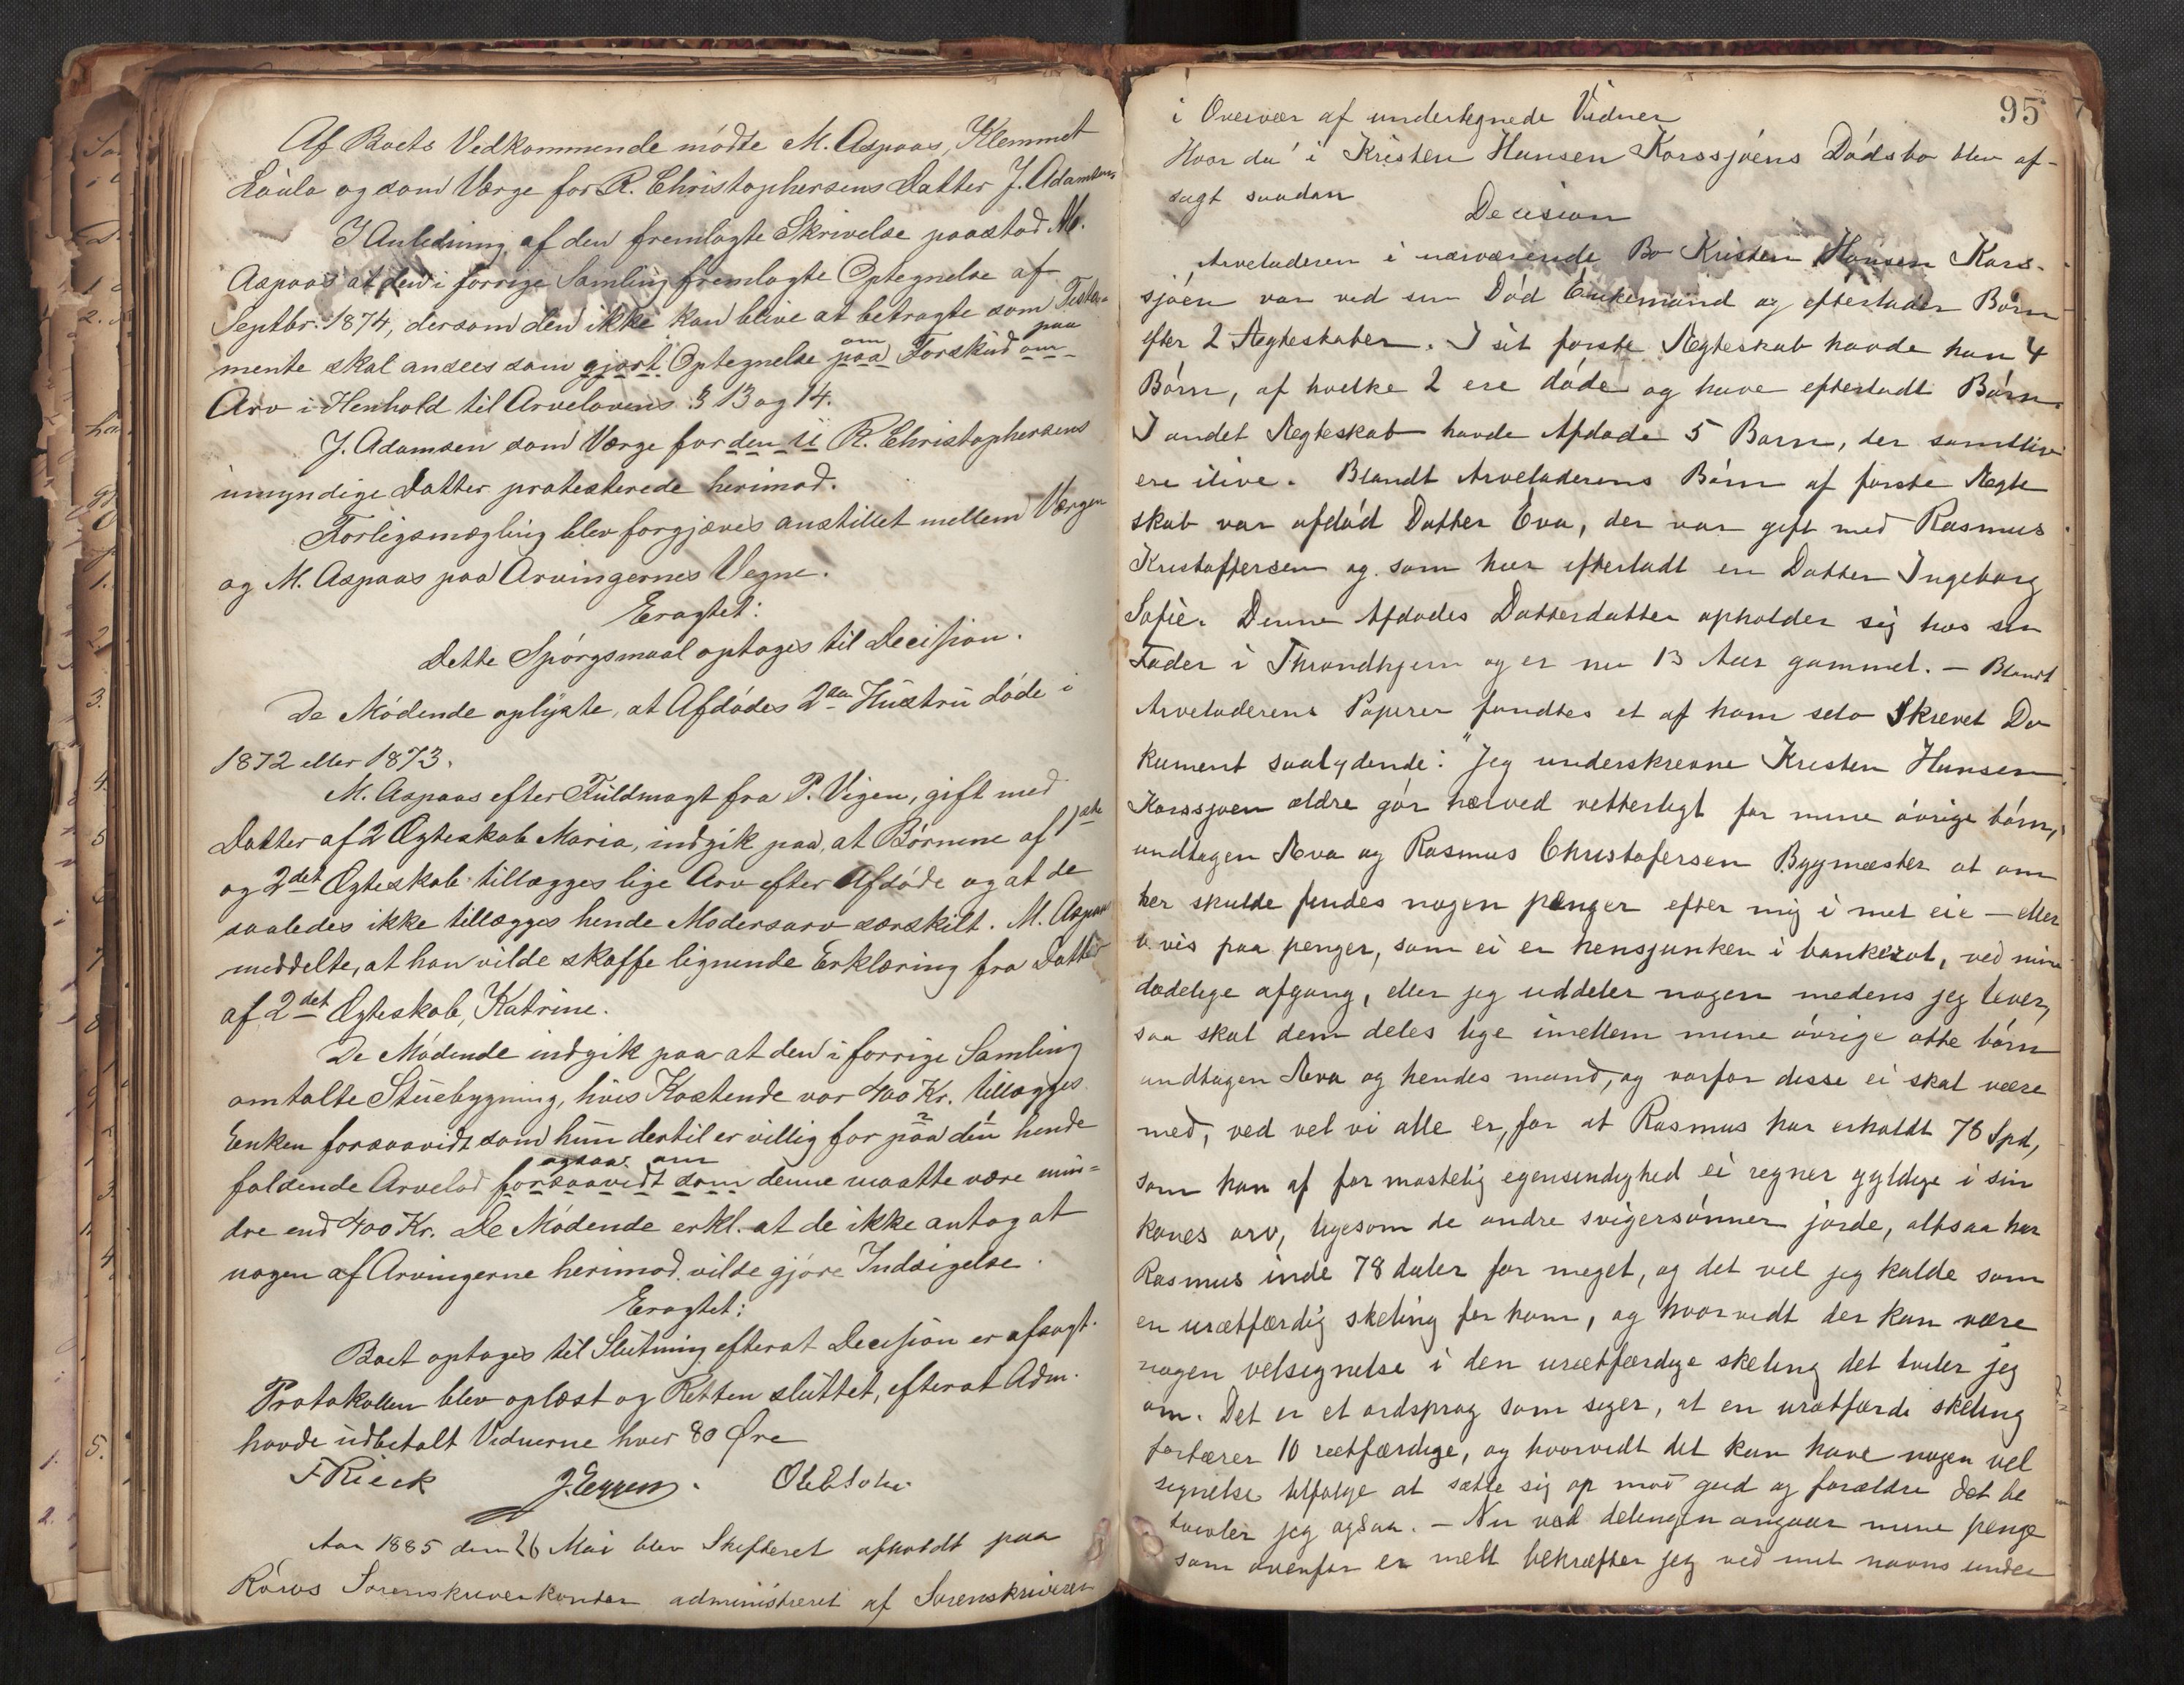 Af Boets Vedkommende mødte M. Aspaas, Klemmet
og som Værge for R. Christophersens Datter J. Adamsen
I Anledning af den fremlagte Skrivelse paastod M.
Aspaas at den i forrige Samling fremlagte Optegnelse af
Septbr. 1874, dersom den ikke kan blive at betragte som Testa-
mente skal ansees som gjort Optegnelse paa om Forskud om paa
Arv i Henhold til Arvelovens § 13 og 14.
J. Adamsen som Værge for den u R. Christophersens
umyndige Datter protesterede herimod.
Forligsmægling blev forgjæves anstillet mellem Værgen
og M. Aspaas paa Arvingernes Vegne.
Eragtet:
Dette Spørgsmaal optages til Decision.
De Mødende oplyste, at Afdødes 2den Hustru døde i
1872 eller 1873.
M. Aspaas efter Fuldmagt fra P. Vigen, gift med
Datter af 2 Ægteskab Maria, indgik paa, at Børnene af 1ste
og 2det Ægteskab tillægges lige Arv efter Afdøde og at de
saaledes ikke tillægges hende Modersarv særskilt. M. Aspaas
meddelte, at han vilde skaffe lignende Erklæring fra Datter
af 2det Ægteskab, Katrine.
De Mødende indgik paa at den i forrige Samling
omtalte Stuebygning, hvis Kostende var 400 Kr. tillægges
Enken forsaavidt som hun dertil er villig for paa den hende
faldende Arvelod forsaavidt som ogsaa om denne maatte være min=
dre end 400 Kr. De Mødende erkl. at de ikke antog at
nogen af Arvingerne herimod vilde gjøre Indsigelse.
Eragtet:
Boet optages til Slutning efterat Decision er afsagt.
Protokollen blev oplæst og Retten sluttet, efterat Adm.
havde udbetalt Vidnerne hver 80 Øre
F Rieck J. Eggen.
Aar 1885 den 26 Mai blev Skifteret afholdt paa
Røros Sorenskriverkontor administreret af Sorenskriveren
95
i Overvær af undertegnede Vidner
Hvor da i Kristen Hansen Korssjøens Dødsbo blev af-
sagt saadan
Decision
Arveladeren i nærværende Bo Kristen Hansen Kors-
sjøen var ved sin Død Enkemand og efterlader Børn
efter 2 Ægteskaber. I sit første Ægteskab havde han 4
Børn, af hvilke 2 ere døde og have efterladt Børn.
I andet Ægteskab havde Afdøde 5 Børn, der samtlige
ere ilive. Blandt Arveladerens Børn af første Ægte
skab var afdød Datter Eva, der var gift med Rasmus
Kristoffersen og som har efterladt en Datter Ingeborg
Sofie. Denne Afdødes Datterdatter opholder sig hos sin
Fader i Throndhjem og er nu 13 Aar gammel. — Blandt
Arveladerens Papirer fandtes et af ham selv skrevet Do
kument saalydende: "Jeg underskrevne Kristen Hansen
Korssjoen ældre gør herved vitterligt for mine øvrige børn,
undtagen Æva og Rasmus Christofersen Bygmæster at om
her skulde findes nogen penger efter mig i mit eie — eller
bevis paa penger, som ei er hensjunken i bankerot, ved min
dødelige afgang, eller jeg uddeler nogen medens jeg lever,
saa skal dem deles lige imellem mine øvrige otte børn
undtagen Æva og hendes mand, og varfor disse ei skal være
med, ved vel vi alle er, for at Rasmus har erholdt 78 Spd,
som han af for mastelig egensindighed ei regner gyldige i sin
kones arv, ligesom de andre svigersønner jorde, altsaa har
Rasmus inde 78 daler for meget, og det vil jeg kalde som
en urætfærdig skeling for ham, og hvorvidt der kan være
nogen velsignelse i den urætfærdige skeling det tviler jeg
om. Det er et ordsprog som siger, at en urætfærdi skeling
fortærer 10 rætfærdige, og hvorvidt det kan have nogen vel
signelse tilfølge at sætte sig op mod gud og forældre det be
tvivler jeg ogsaa. — Nu vad delingen angaar mine penge
som ovenfor er mælt bekræfter jeg ved mit navns under